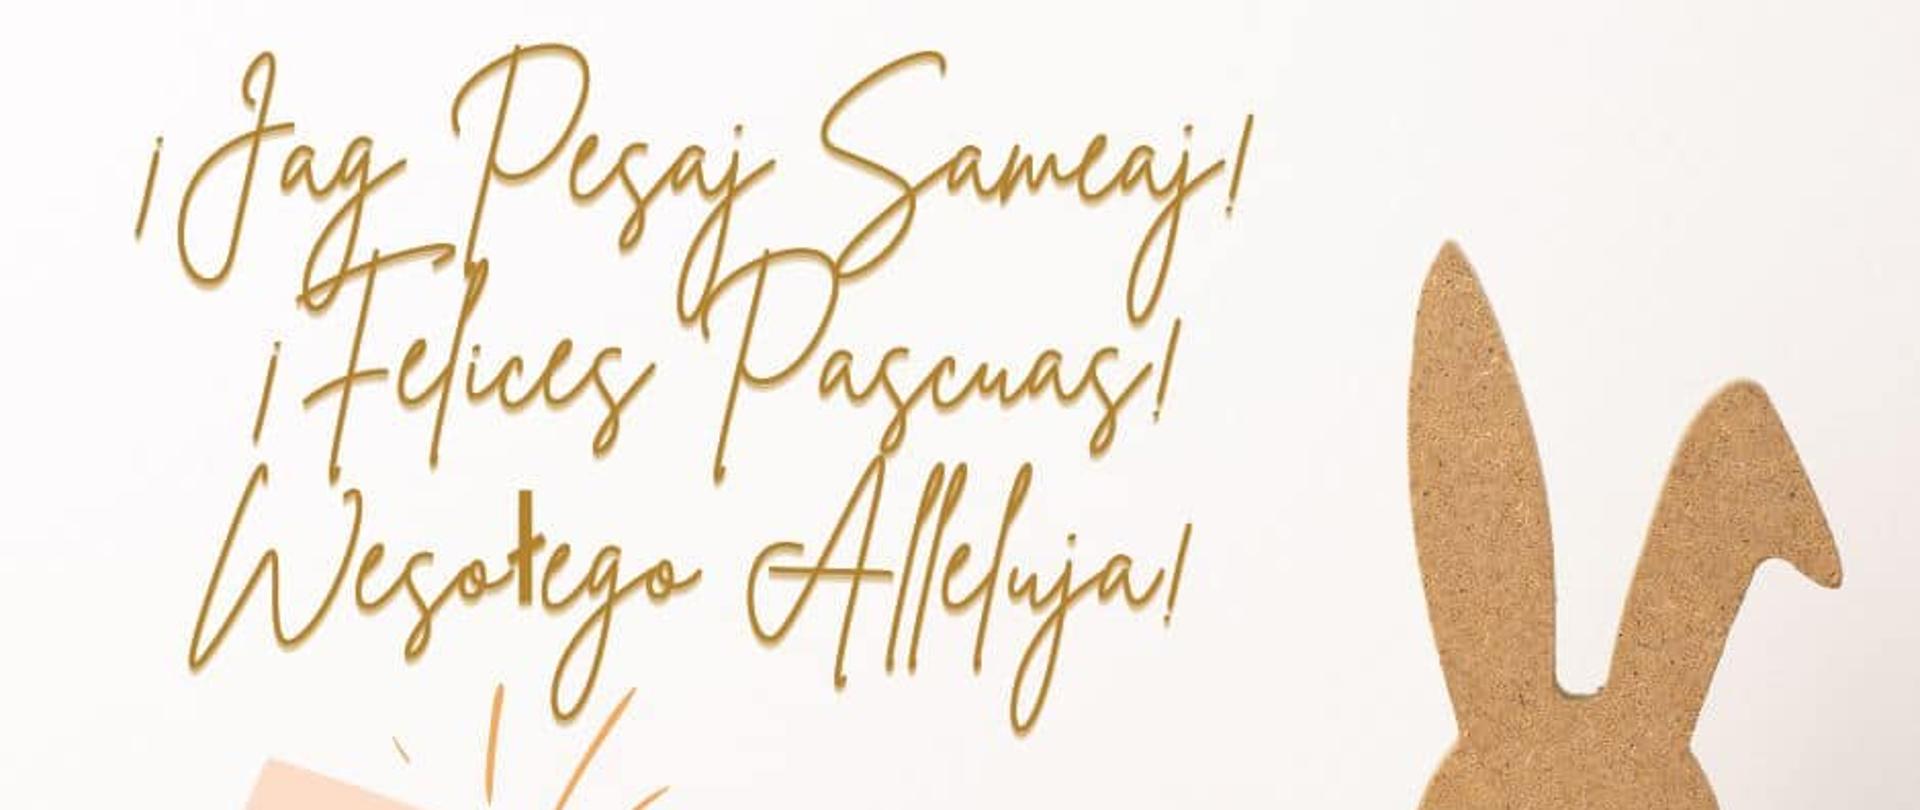 ¡Jag Pesaj Sameaj!
¡Felices Pascuas!
Wesołego Alleluja!